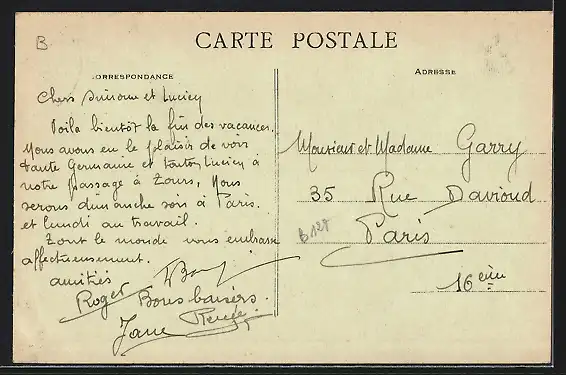 B
CARTE POSTALE
CORRESPONDANCE
ADRESSE
Chers Suzanne et Lucien
Voila bientôt la fin des vacances.
Nous avons eu le plaisir de voir
tante Germaine et tonton Lucien à
notre passage à Tours, Nous
serons dimanche soir à Paris.
et lundi au travail.
Tout le monde vous embrasse
affectueusement.
amitiés
Roger
Bons baisers.
Jane Renée.
Monsieur et Madame Garry
35 Rue Davioud
B127
Paris
16 eme